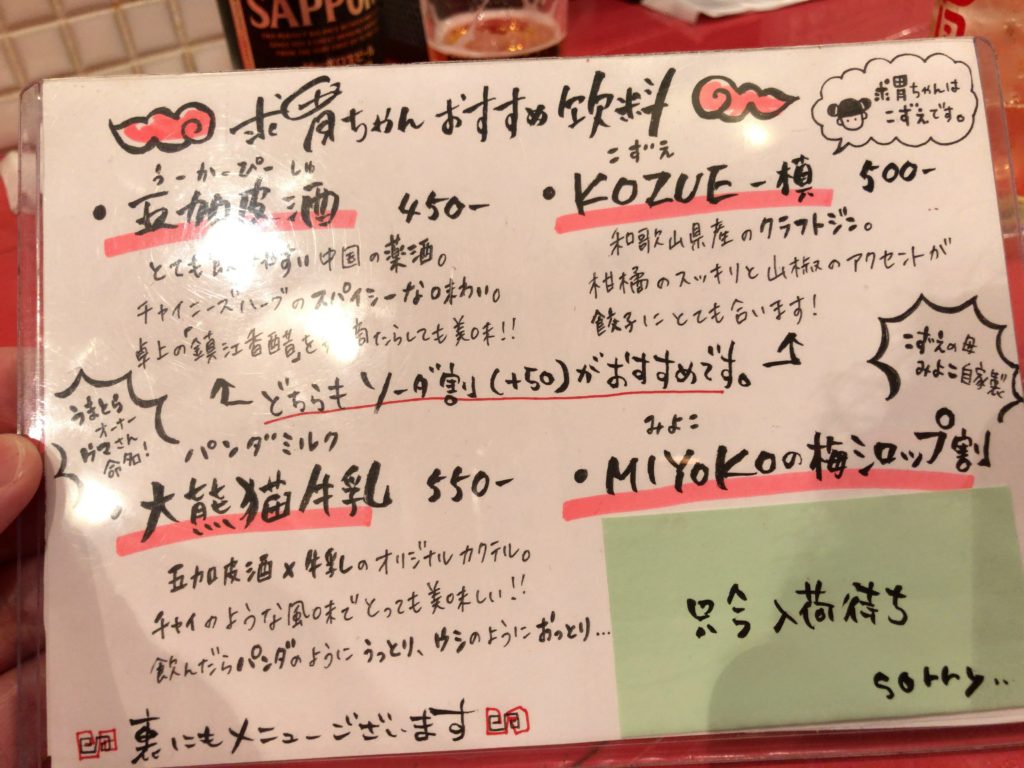 SAPPO
求胃ちゃんおすすめ飲料
求胃ちゃんは
こずえです。
うーかーぴーじゅ
・五加皮酒 450-
とても やすい中国の薬酒。
チャイニーズハーブのスパイシーな味わい。
卓上の「鎮江香醋」を たらしても美味!!
こずえ
・KOZUE-槙 500-
和歌山県産のクラフトジン。
柑橘のスッキリと山椒のアクセントが
餃子にとても合います!
← どちらもソーダ割(+50)がおすすめです。 ↑
うまとら
オーナー
さん
命名!
パンダミルク
・大熊猫牛乳 550-
五加皮酒×牛乳のオリジナルカクテル。
チャイのような風味でとっても美味しい!!
飲んだらパンダのようにうっとり、ウシのようにおっとり…
こずえの母
みよこ自家製
みよこ
・MIYOKOの梅シロップ割
只今入荷待ち
sorry...
裏にもメニューございます